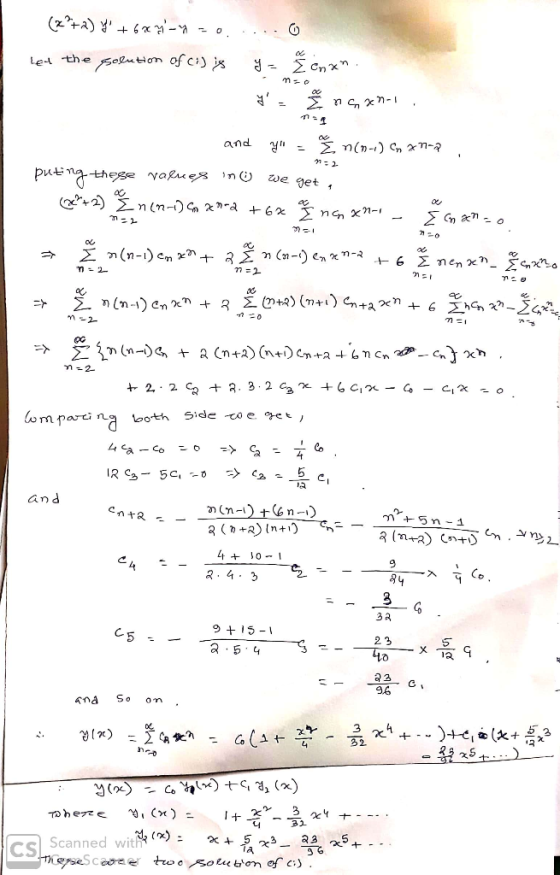 (x²+2) y' + 6xy' - y = 0. .... ①
Let the solution of (i) is y = ∑_{n=0}^{∞} cₙ xⁿ.
y' = ∑_{n=1}^{∞} n cₙ xⁿ⁻¹.
and y'' = ∑_{n=2}^{∞} n(n-1) cₙ xⁿ⁻²,
puting these values in (i) we get,
(x²+2) ∑_{n=2}^{∞} n(n-1) cₙ xⁿ⁻² + 6x ∑_{n=1}^{∞} n cₙ xⁿ⁻¹ - ∑_{n=0}^{∞} cₙ xⁿ = 0
⇒ ∑_{n=2}^{∞} n(n-1) cₙ xⁿ + 2 ∑_{n=2}^{∞} n(n-1) cₙ xⁿ⁻² + 6 ∑_{n=1}^{∞} n cₙ xⁿ - ∑_{n=0}^{∞} cₙ xⁿ = 0
⇒ ∑_{n=2}^{∞} n(n-1) cₙ xⁿ + 2 ∑_{n=0}^{∞} (n+2)(n+1) cₙ₊₂ xⁿ + 6 ∑_{n=1}^{∞} n cₙ xⁿ - ∑_{n=0}^{∞} cₙ xⁿ =
⇒ ∑_{n=2}^{∞} {n(n-1) cₙ + 2(n+2)(n+1) cₙ₊₂ + 6n cₙ - cₙ} xⁿ.
+ 2·2 c₂ + 2·3·2 c₃ x + 6 c₁ x - c₀ - c₁ x = 0.
Comparing both side we get,
4c₂ - c₀ = 0 ⇒ c₂ = 1/4 c₀
12 c₃ - 5c₁ = 0 ⇒ c₃ = 5/12 c₁
and
cₙ₊₂ = - (n(n-1) + (6n-1))/(2(n+2)(n+1)) cₙ = - (n²+5n-1)/(2(n+2)(n+1)) cₙ. ∀ n≥2
c₄ = - (4+10-1)/(2·4·3) c₂ = - 9/24 × 1/4 c₀.
= - 3/32 c₀.
c₅ = - (9+15-1)/(2·5·4) c₃ = - 23/40 × 5/12 c₁
= - 23/96 c₁
and so on.
∴ y(x) = ∑_{n=0}^{∞} cₙ xⁿ = c₀(1 + x²/4 - 3/32 x⁴ + ...) + c₁(x + 5/12 x³
- 23/96 x⁵ + ...)
∴ y(x) = c₀ y₁(x) + c₁ y₂(x)
where y₁(x) = 1 + x²/4 - 3/32 x⁴ + ----
y₂(x) = x + 5/12 x³ - 23/96 x⁵ + ...
These are two solution of (i).
CS Scanned with
CamScanner